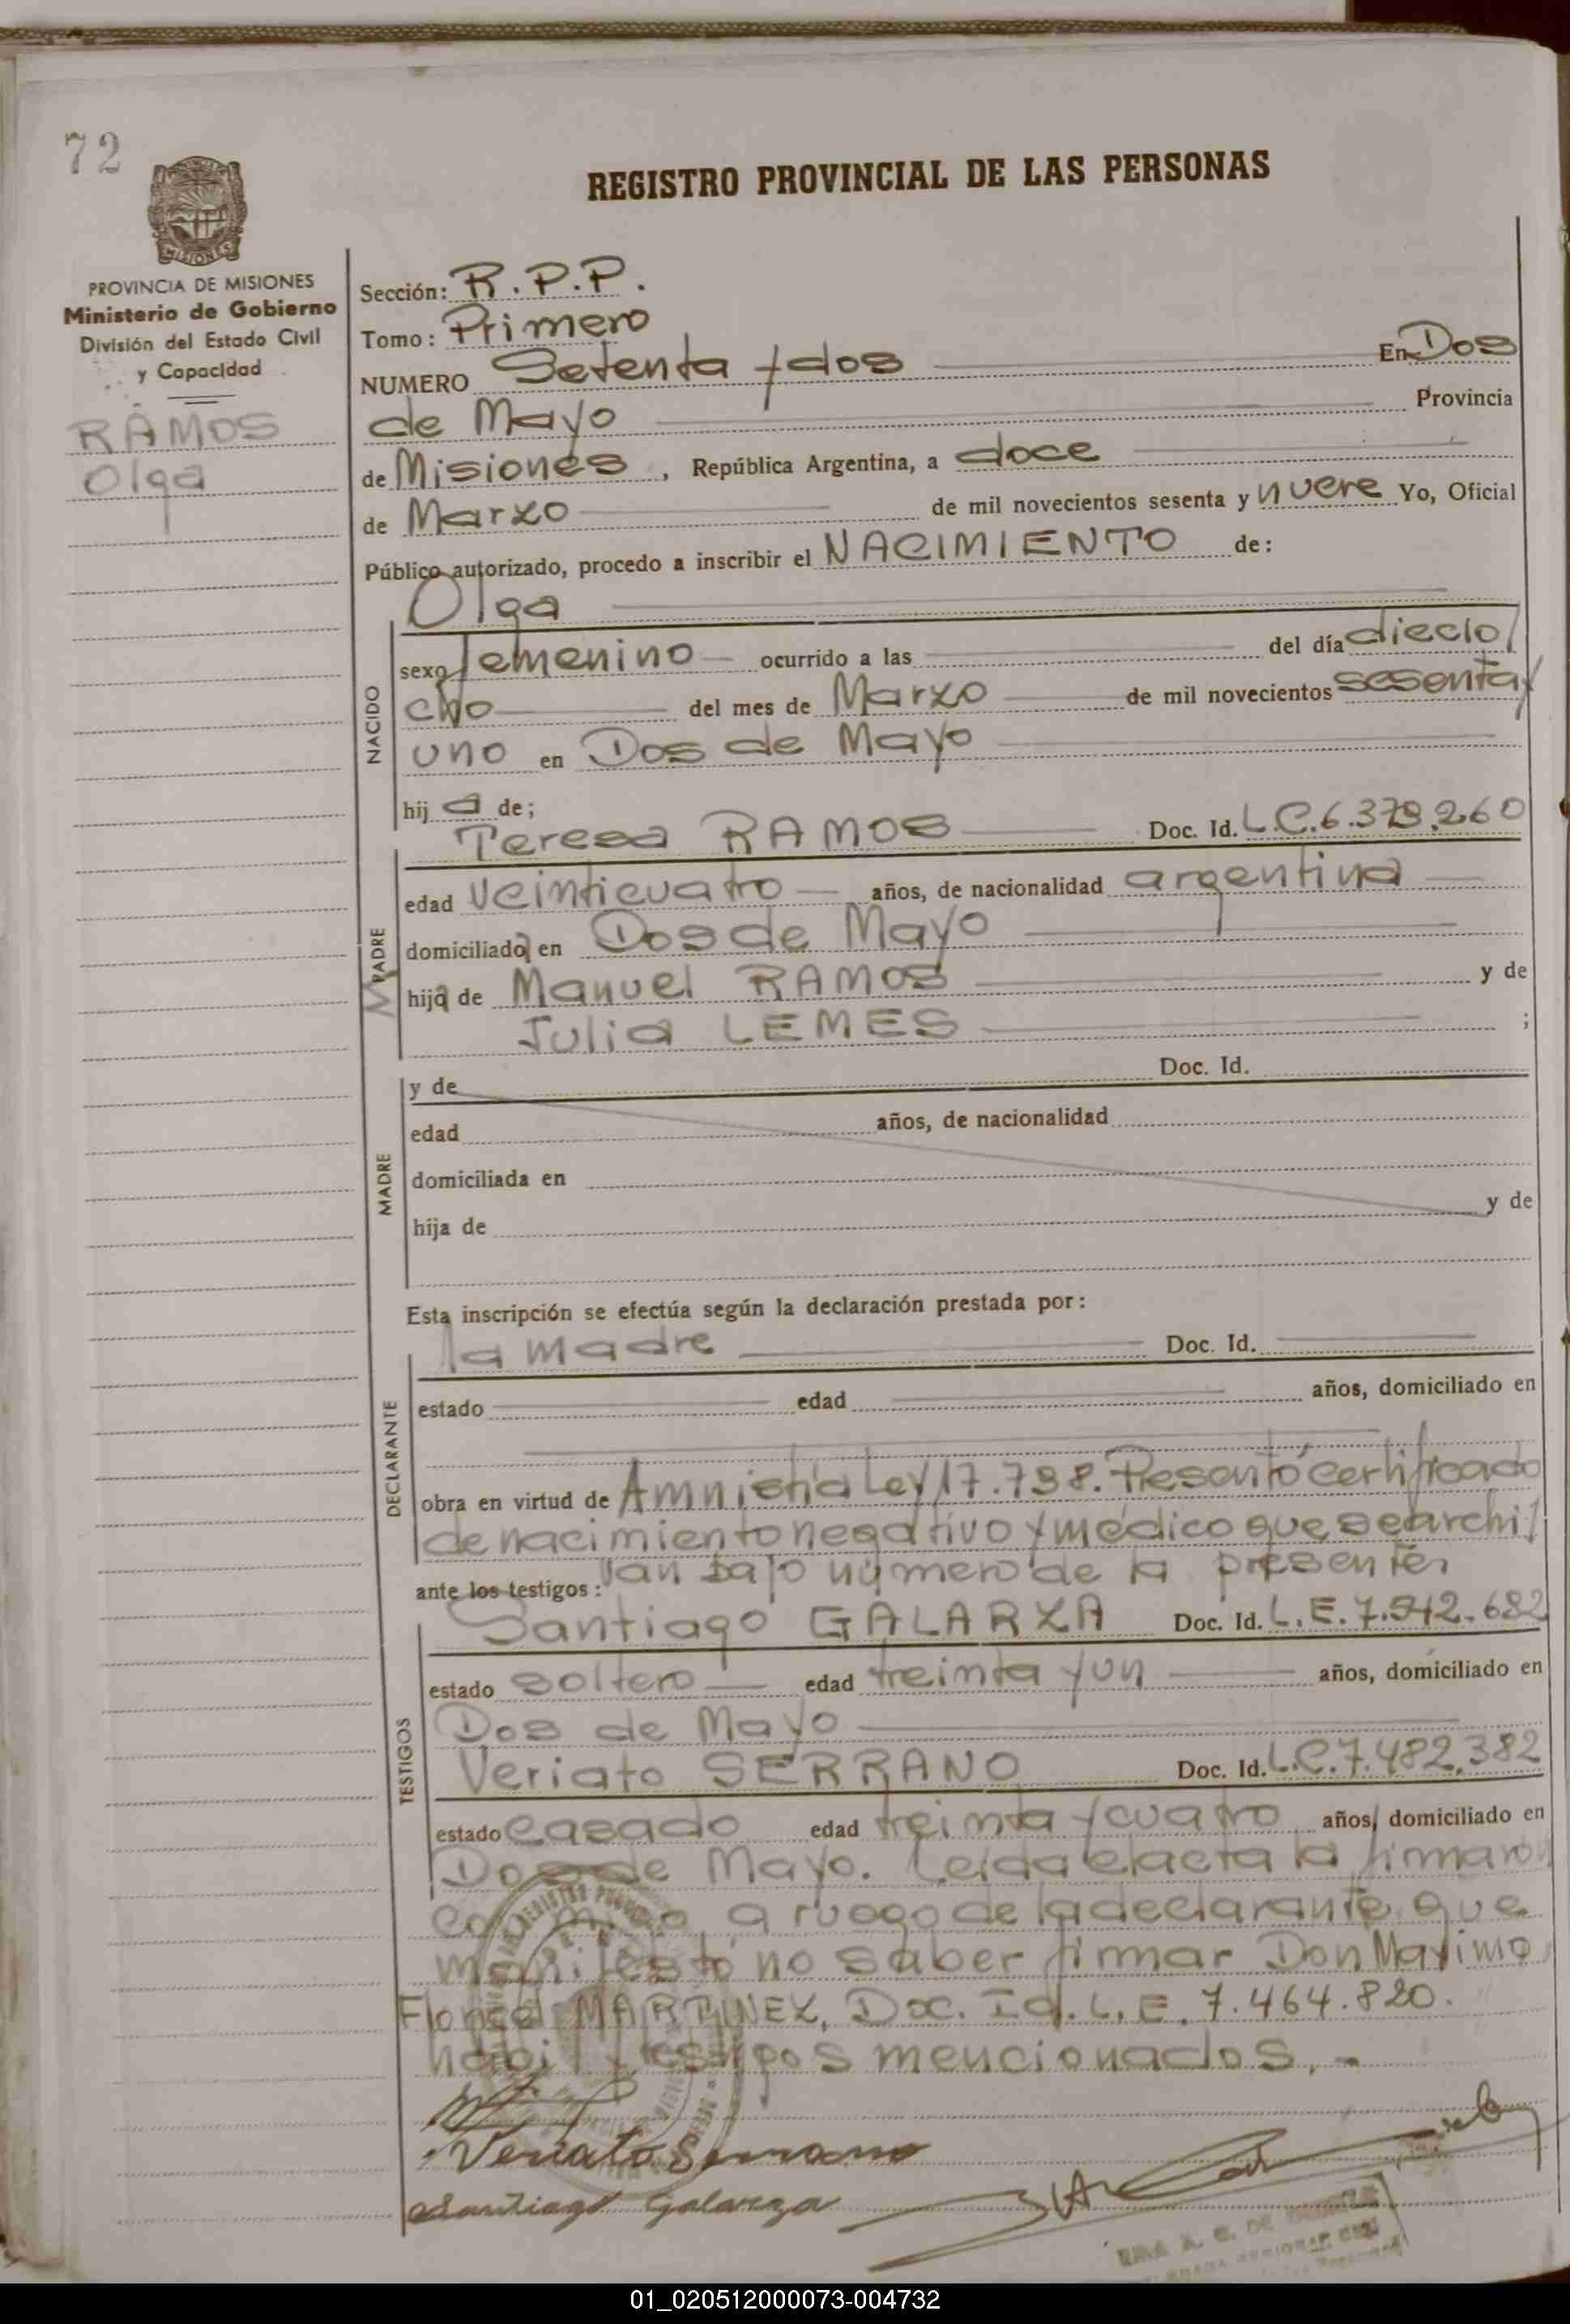 72
REGISTRO PROVINCIAL DE LAS PERSONAS
MISIONES
PROVINCIA DE MISIONES
Ministerio de Gobierno
División del Estado Civil
y Capacidad
RAMOS
Olga
Sección: R.P.P.
Tomo: Primero
NUMERO Setenta y dos En Dos
de Mayo Provincia
de Misiones, República Argentina, a doce
de Marzo de mil novecientos sesenta y nueve Yo, Oficial
Público autorizado, procedo a inscribir el NACIMIENTO de:
Olga
NACIDO
sexo femenino ocurrido a las del día diecio/
cho del mes de Marzo de mil novecientos sesenta y
uno en Dos de Mayo
hij a de;
Teresa RAMOS Doc. Id. L.C.6.379.260
MADRE
edad veinticuatro años, de nacionalidad argentina
domiciliada en Dos de Mayo
hija de Manuel RAMOS y de
Julia LEMES ;
MADRE
y de Doc. Id.
edad años, de nacionalidad
domiciliada en
hija de y de
Esta inscripción se efectúa según la declaración prestada por:
la madre Doc. Id.
DECLARANTE
estado edad años, domiciliado en
obra en virtud de Amnistia Ley 17.798. Presentó certificado
de nacimiento negativo y médico que se archi/
van bajo número de la presente,
ante los testigos:
Santiago GALARZA Doc. Id. L.E.7.542.682
TESTIGOS
estado soltero edad treinta y un años, domiciliado en
Dos de Mayo
Veriato SERRANO Doc. Id. L.C.7.482.382
estado casado edad treinta y cuatro años, domiciliado en
Dos de Mayo. Leida el acta la firmaron
conmigo, a ruego de la declarante que
manifestó no saber firmar Don Maximo
MARTINEZ, Doc. Id. L.E. 7.464.820.
habil y testigos mencionados.-
Veriato Serrano
Santiago Galarza
01_020512000073-004732